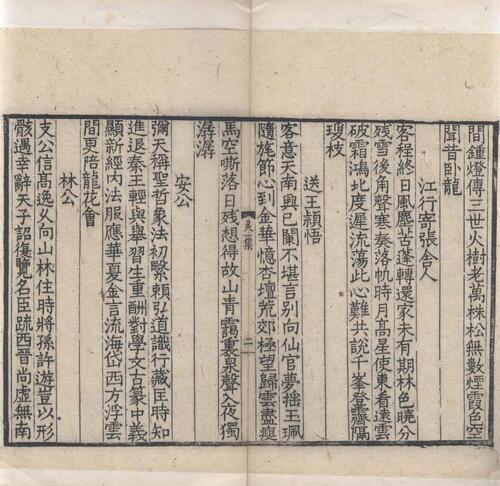 間鍾燈傳三世火樹老萬株松無數煙霞色空
聞昔卧龍
江行寄張舍人
客程終日風塵苦蓬轉還家未有期林色曉分
殘雪後角聲寒奏落帆時月高星使東看遠雲
破霜鴻北度遲流蕩此心難共說千峯登霽隔
瓊枝
送王頴悟
客意天南興已闌不堪言別向仙官夢摇玉珮
隨旄節心到金華憶杏壇荒郊極望歸雲盡瘦
馬空嘶落日殘想得故山青靄裏泉聲入夜獨
潺潺
靈一集
二
安公
彌天稱聖哲象法初繫賴弘道識行藏匡時知
進退秦王輕與舉習生重酬對學文古篆中義
顯新經内法服應華夏金言流海岱西方浮雲
間更陪龍花會
林公
支公信高逸久向山林住時將孫許遊豈以形
骸遇幸辭天子詔復覽名臣疏西晉尚虛無南